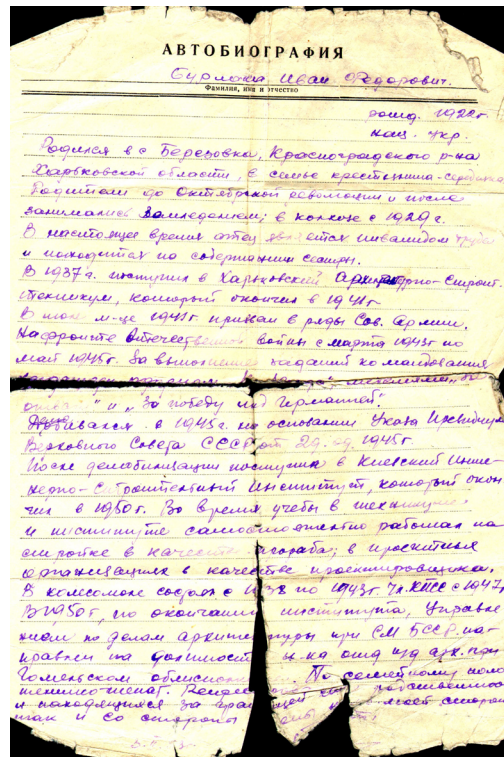 АВТОБИОГРАФИЯ
Бурлака Иван Федорович.
Фамилия, имя и отчество
рожд. 1922 г.
нац. укр.
Родился в с Березовка, Красноградского р-на
Харьковской области, в семье крестьянина-середняка
Родители до Октябрьской революции и после
занимались земледелием; в колхозе с 1929 г.
В настоящее время отец является инвалидом труда
и находится на содержании сестры.
В 1937 г. поступил в Харьковский Строит.
техникум, который окончил в 1941 г
В м-це 1941 г призван в ряды Сов. Армии.
На фронте Отечественной войны с марта 1943 г по
май 1945 г. За выполнение заданий командования
медалями „За
" и „За победу над Германией".
в 1945 г. на основании Указа Президиума
Верховного Совета СССР от 1945 г
После демобилизации поступил в Киевский Инже-
нерно-Строительный Институт, который окон
чил в 1950 г. Во время учебы в техникуме
и институте работал на
стройке в качестве прораба; в проектных
организациях в качестве проектировщика.
В комсомоле состоял с 1938 по 1943 г. Чл. КПСС с 1947 г
В 1950 г, по окончании института, Управле
нием по делам архитектуры при СМ БССР на-
правлен на должность арх. при
Гомельском По семейному поло
жению-женат. родственников
находящихся за границей с моей сторон
так и со стороны жены